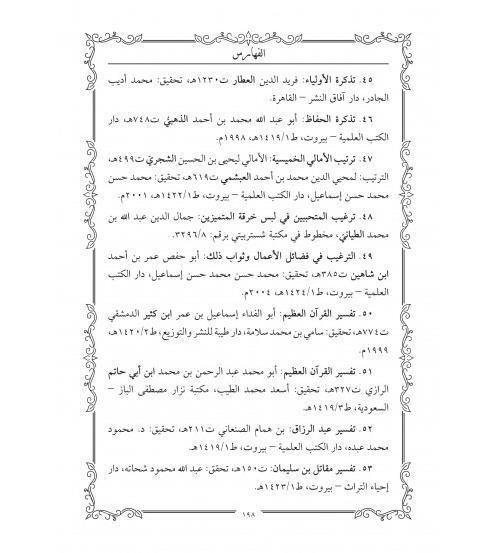 الفهارس
٤٥. تذكرة الأولياء: فريد الدين العطار ت١٢٣٠هـ، تحقيق: محمد أديب
الجادر، دار آفاق النشر – القاهرة.
٤٦. تذكرة الحفاظ: أبو عبد الله محمد بن أحمد الذهبي ت٧٤٨هـ، دار
الكتب العلمية – بيروت، ط١/١٤١٩هـ، ١٩٩٨م.
٤٧. ترتيب الأمالي الخميسية: الأمالي ليحيى بن الحسين الشجري ت٤٩٩هـ،
الترتيب: لمحيي الدين محمد بن أحمد العبشمي ت٦١٩هـ، تحقيق: محمد حسن
محمد حسن إسماعيل، دار الكتب العلمية – بيروت، ط١/١٤٢٢هـ، ٢٠٠١م.
٤٨. ترغيب المتحببين في لبس خرقة المتميزين: جمال الدين عبد الله بن
محمد الطياني، مخطوط في مكتبة شستربيتي برقم: ٣٢٩٦/٨.
٤٩. الترغيب في فضائل الأعمال وثواب ذلك: أبو حفص عمر بن أحمد
ابن شاهين ت٣٨٥هـ، تحقيق: محمد حسن محمد حسن إسماعيل، دار الكتب
العلمية – بيروت، ط١/١٤٢٤هـ، ٢٠٠٤م.
٥٠. تفسير القرآن العظيم: أبو الفداء إسماعيل بن عمر ابن كثير الدمشقي
ت٧٧٤هـ، تحقيق: سامي بن محمد سلامة، دار طيبة للنشر والتوزيع، ط٢/١٤٢٠هـ،
١٩٩٩م.
٥١. تفسير القرآن العظيم: أبو محمد عبد الرحمن بن محمد ابن أبي حاتم
الرازي ت٣٢٧هـ، تحقيق: أسعد محمد الطيب، مكتبة نزار مصطفى الباز –
السعودية، ط٣/١٤١٩هـ.
٥٢. تفسير عبد الرزاق: بن همام الصنعاني ت٢١١هـ، تحقيق: د. محمود
محمد عبده، دار الكتب العلمية – بيروت، ط١/١٤١٩هـ.
٥٣. تفسير مقاتل بن سليمان: ت١٥٠هـ، تحقق: عبد الله محمود شحاته، دار
إحياء التراث – بيروت، ط١/١٤٢٣هـ.
١٩٨